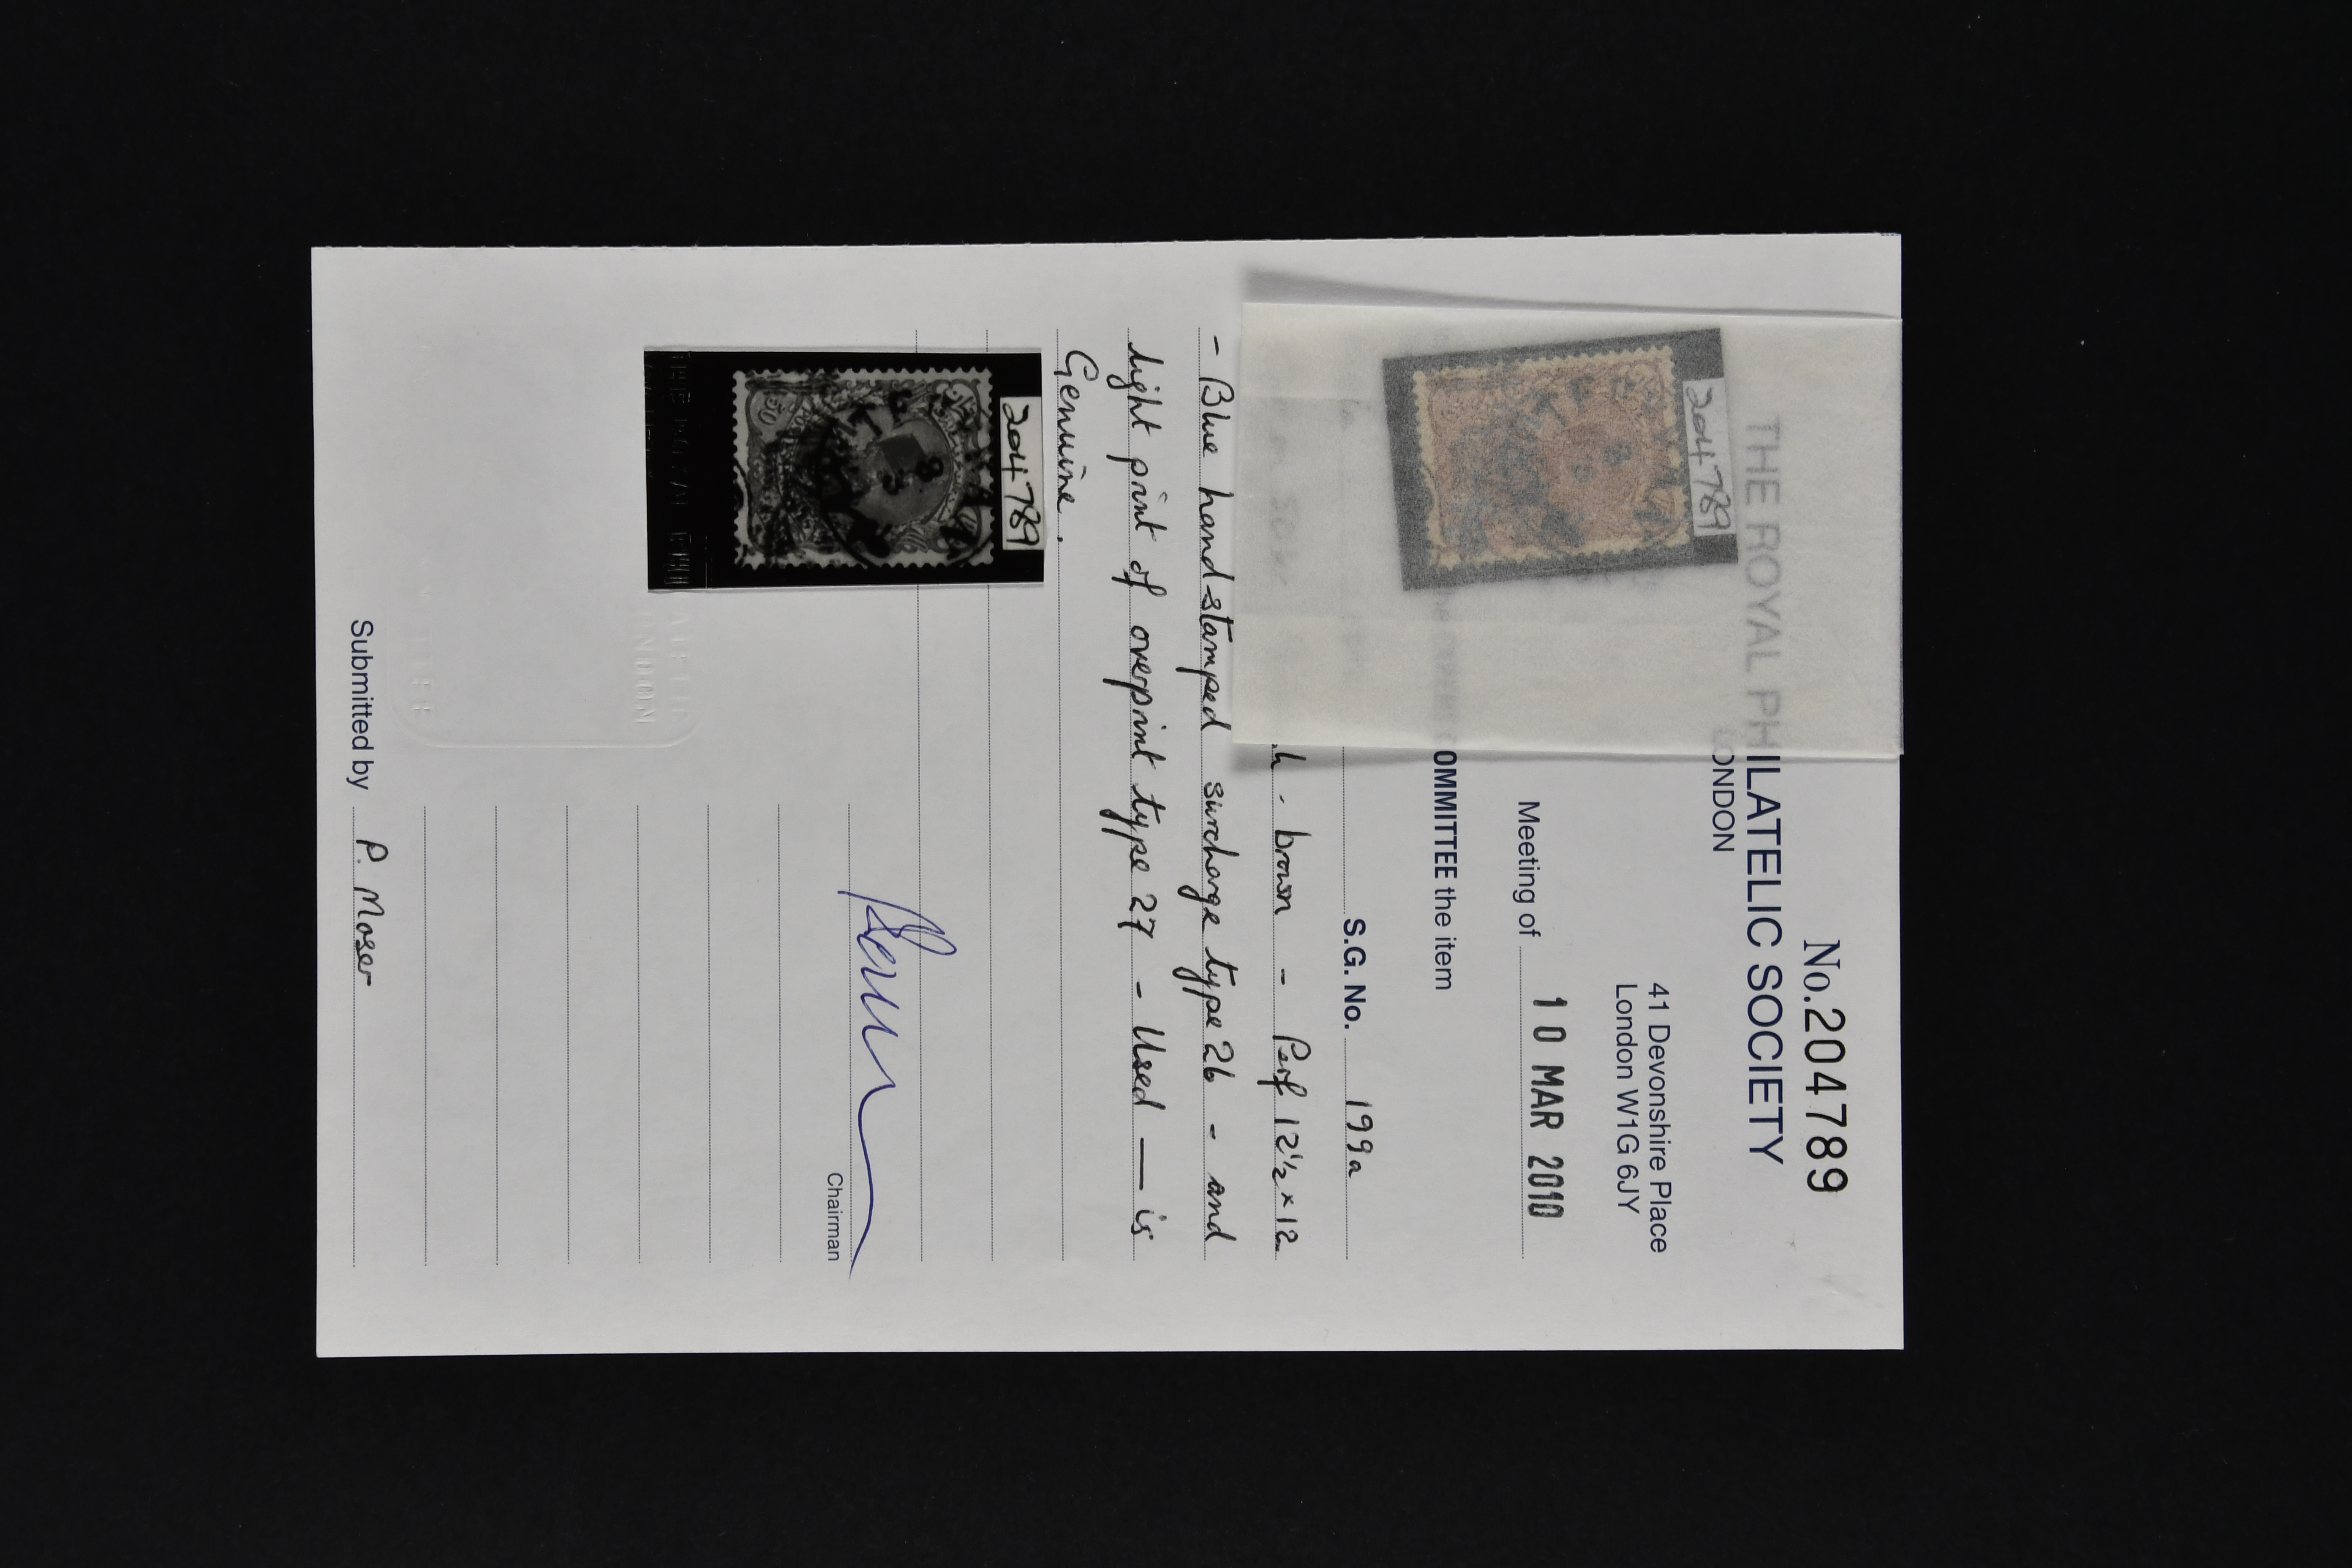 No.204789
THE ROYAL PHILATELIC SOCIETY
LONDON
41 Devonshire Place
London W1G 6JY
Meeting of 10 MAR 2010
OMMITTEE the item
S.G. No. 199a
h-brown - Perf 12½ x 12
- Blue hand-stamped surcharge type 26 - and
light print of overprint type 27 - Used — is
Genuine.
204789
204789
Chairman
Submitted by P. Moser